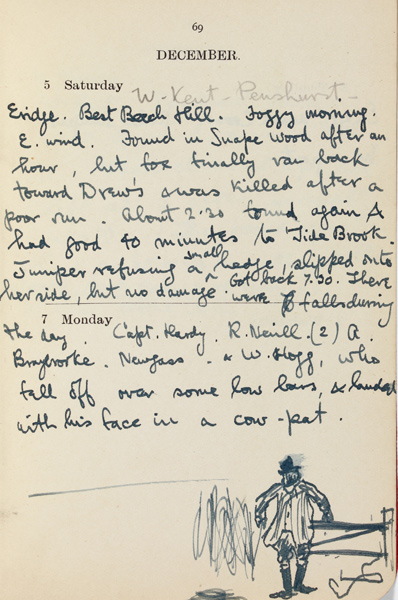 69
DECEMBER.
5 Saturday W. Kent - Penshurst -
Eridge. Best Beech Hill. Foggy morning.
E. wind. Found in Snape Wood after an
hour, but fox finally ran back
toward Drew's & was killed after a
poor run. About 2.30 found again &
had good 40 minutes to Tide Brook.
small
Juniper refusing a hedge, slipped onto
her side, but no damage. Got back 7.30. There
were 6 falls during
7 Monday
the day. Capt. Hardy. R. Neill. (2) A.
Braybrooke. Newgass. & W. Hogg, who
fell off over some low bars, & landed
with his face in a cow-pat.